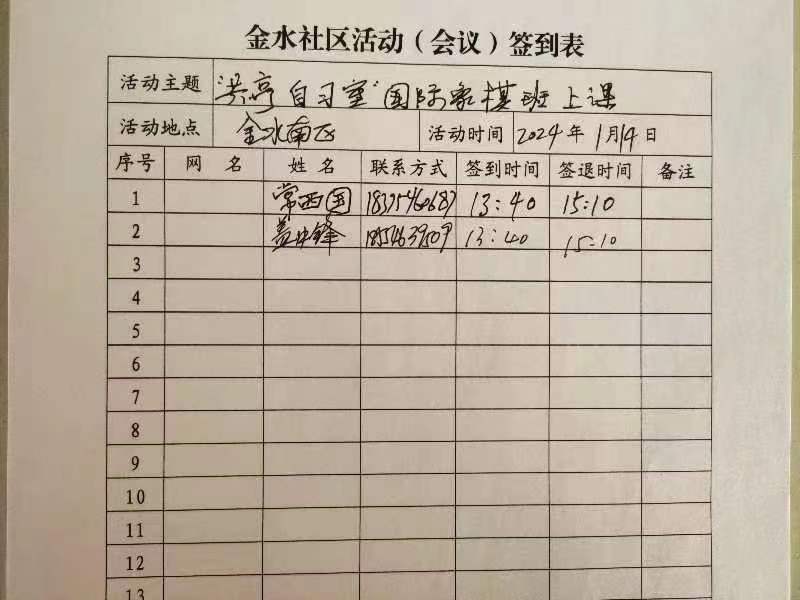 金水社区活动（会议）签到表
活动主题 洪亭自习室"国际象棋班上课
活动地点 金水南区 活动时间 2024年1月14日
序号 网名 姓名 联系方式 签到时间 签退时间 备注
1 常西国 13:40 15:10
2 盖中锋 18554639509 13:40 15:10
3
4
5
6
7
8
9
10
11
12
13